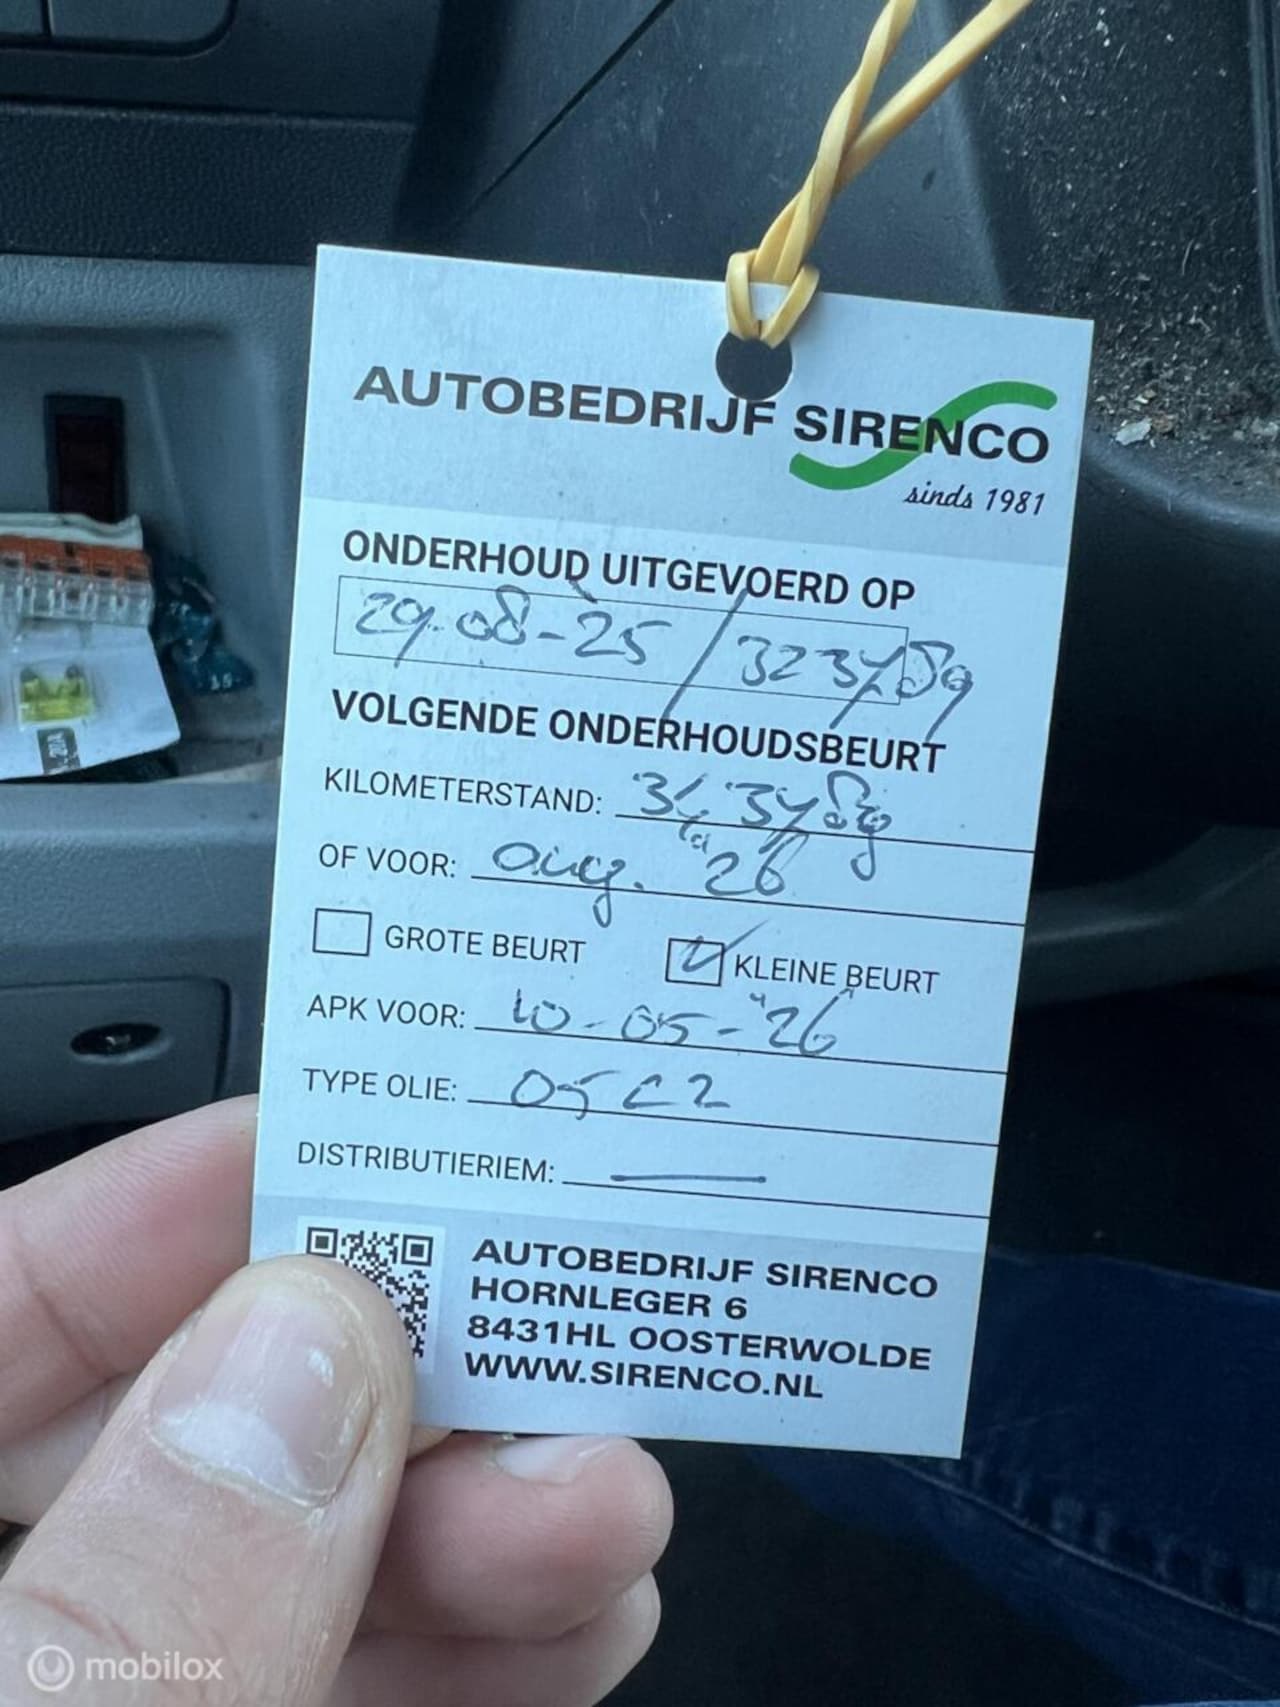 AUTOBEDRIJF SIRENCO
sinds 1981
ONDERHOUD UITGEVOERD OP
29-08-25 / 323789
VOLGENDE ONDERHOUDSBEURT
KILOMETERSTAND:
OF VOOR: aug. '26
GROTE BEURT KLEINE BEURT
APK VOOR: 10-05-'26
TYPE OLIE: C2
DISTRIBUTIERIEM: —
AUTOBEDRIJF SIRENCO
HORNLEGER 6
8431HL OOSTERWOLDE
WWW.SIRENCO.NL
20A
mobilox